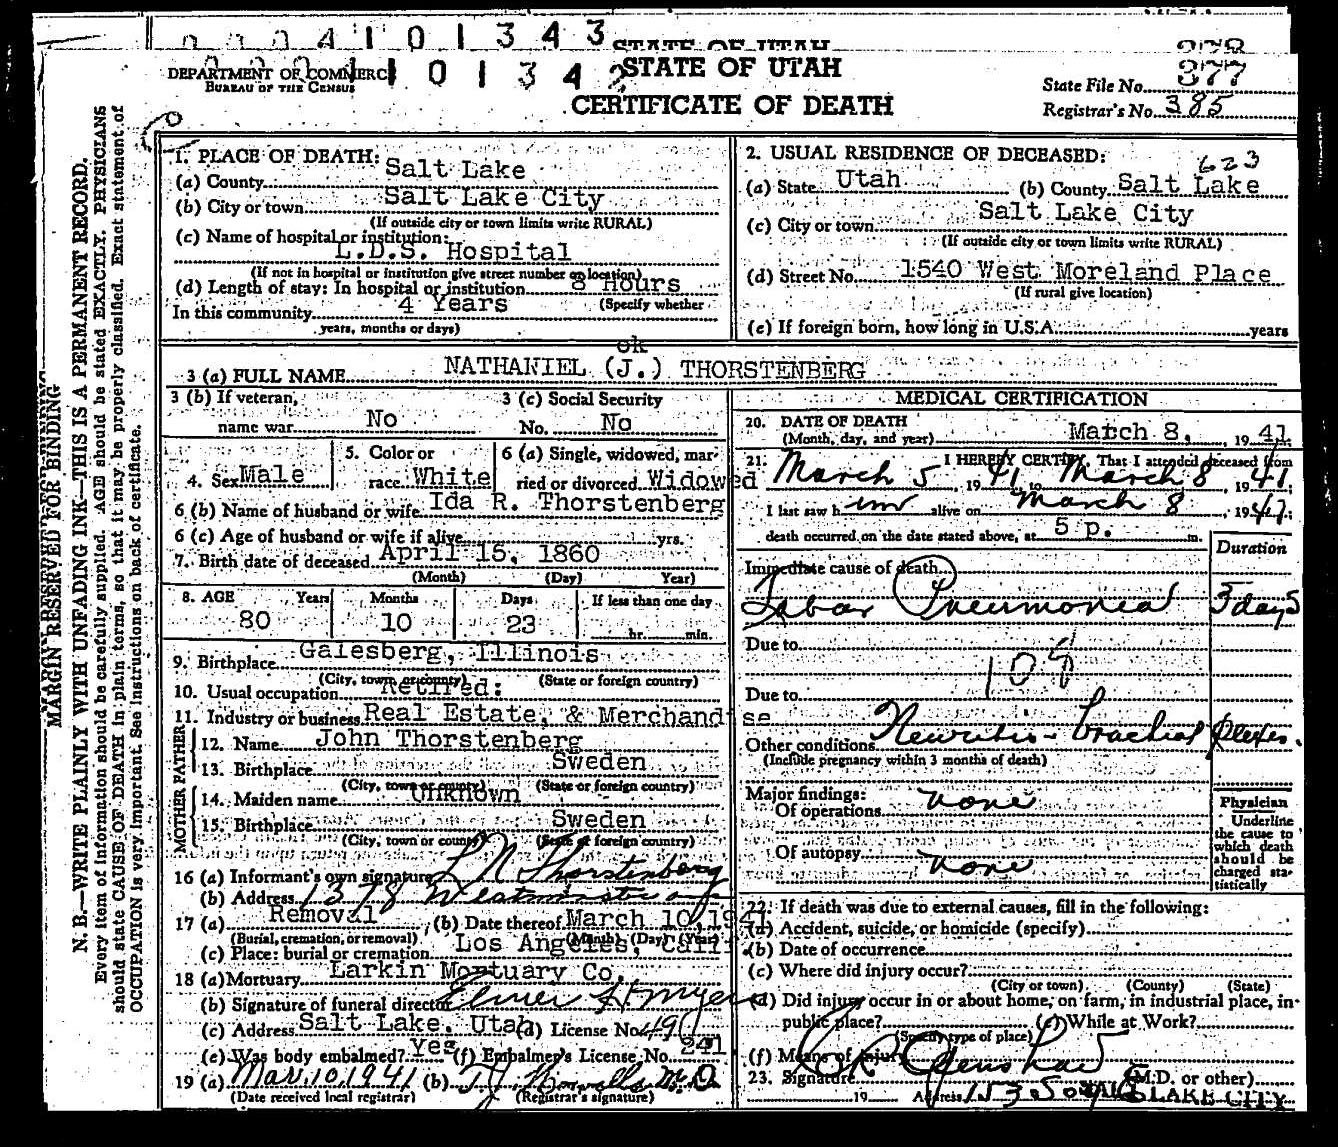 101343 STATE OF UTAH 378
DEPARTMENT OF COMMERCE 101342 STATE OF UTAH
BUREAU OF THE CENSUS
State File No. 377
CERTIFICATE OF DEATH
Registrar's No. 385
MARGIN RESERVED FOR BINDING
N. B.—WRITE PLAINLY WITH UNFADING INK—THIS IS A PERMANENT RECORD.
Every item of information should be carefully supplied. AGE should be stated EXACTLY. PHYSICIANS
should state CAUSE OF DEATH in plain terms, so that it may be properly classified. Exact statement of
OCCUPATION is very important. See instructions on back of certificate.
1. PLACE OF DEATH:
(a) County Salt Lake
(b) City or town Salt Lake City
(If outside city or town limits write RURAL)
(c) Name of hospital or institution:
L.D.S. Hospital
(If not in hospital or institution give street number or location)
(d) Length of stay: In hospital or institution 8 Hours
In this community 4 Years (Specify whether
years, months or days)
2. USUAL RESIDENCE OF DECEASED: 623
(a) State Utah (b) County Salt Lake
(c) City or town Salt Lake City
(If outside city or town limits write RURAL)
(d) Street No. 1540 West Moreland Place
(If rural give location)
(e) If foreign born, how long in U.S.A. years
ok
3 (a) FULL NAME NATHANIEL (J.) THORSTENBERG
3 (b) If veteran, 3 (c) Social Security
name war No No. No
4. Sex Male 5. Color or race White 6 (a) Single, widowed, married or divorced Widowed
6 (b) Name of husband or wife Ida R. Thorstenberg
6 (c) Age of husband or wife if alive yrs.
7. Birth date of deceased April 15, 1860
(Month) (Day) Year)
8. AGE Years Months Days If less than one day
80 10 23 hr. min.
9. Birthplace Galesberg, Illinois
(City, town or county) (State or foreign country)
10. Usual occupation Retired:
11. Industry or business Real Estate, & Merchandise
FATHER
12. Name John Thorstenberg
13. Birthplace Sweden
(City, town or county) (State or foreign country)
MOTHER
14. Maiden name Unknown
15. Birthplace Sweden
(City, town or county) (State or foreign country)
16 (a) Informant's own signature L N Thorstenberg
(b) Address 1378 Westminster
17 (a) Removal (b) Date thereof March 10, 1941
(Burial, cremation, or removal) (Month) (Day) (Year)
(c) Place: burial or cremation Los Angeles, Calif
18 (a) Mortuary Larkin Mortuary Co.
(b) Signature of funeral director Elmer
(c) Address Salt Lake, Utah (d) License No. 490
(e) Was body embalmed? Yes (f) Embalmer's License No. 241
19 (a) Mar. 10, 1941 (b) T. J. Howells M.D.
(Date received local registrar) (Registrar's signature)
MEDICAL CERTIFICATION
20. DATE OF DEATH
(Month, day, and year) March 8, 1941
21. I HEREBY CERTIFY, That I attended deceased from
March 5, 1941 to March 8 1941
I last saw him alive on March 8, 1941;
death occurred on the date stated above, at 5 p. m.
Duration
Immediate cause of death
Lobar Pneumonia 3 days
Due to
108
Due to
Other conditions Neuritis - brachial plexes.
(Include pregnancy within 3 months of death)
Major findings:
Of operations none
Of autopsy none
Physician
Underline
the cause to
which death
should be
charged sta-
tistically
22. If death was due to external causes, fill in the following:
(a) Accident, suicide, or homicide (specify)
(b) Date of occurrence
(c) Where did injury occur?
(City or town) (County) (State)
(d) Did injury occur in or about home, on farm, in industrial place, in
public place? (e) While at Work?
(Specify type of place)
(f) Means of injury
23. Signature (M.D. or other)
19 Address SALT LAKE CITY